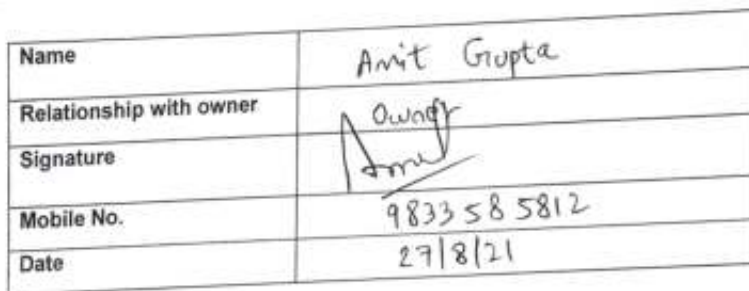 Name Amit Gupta
Relationship with owner Owner
Signature
Mobile No. 9833585812
Date 27/8/21